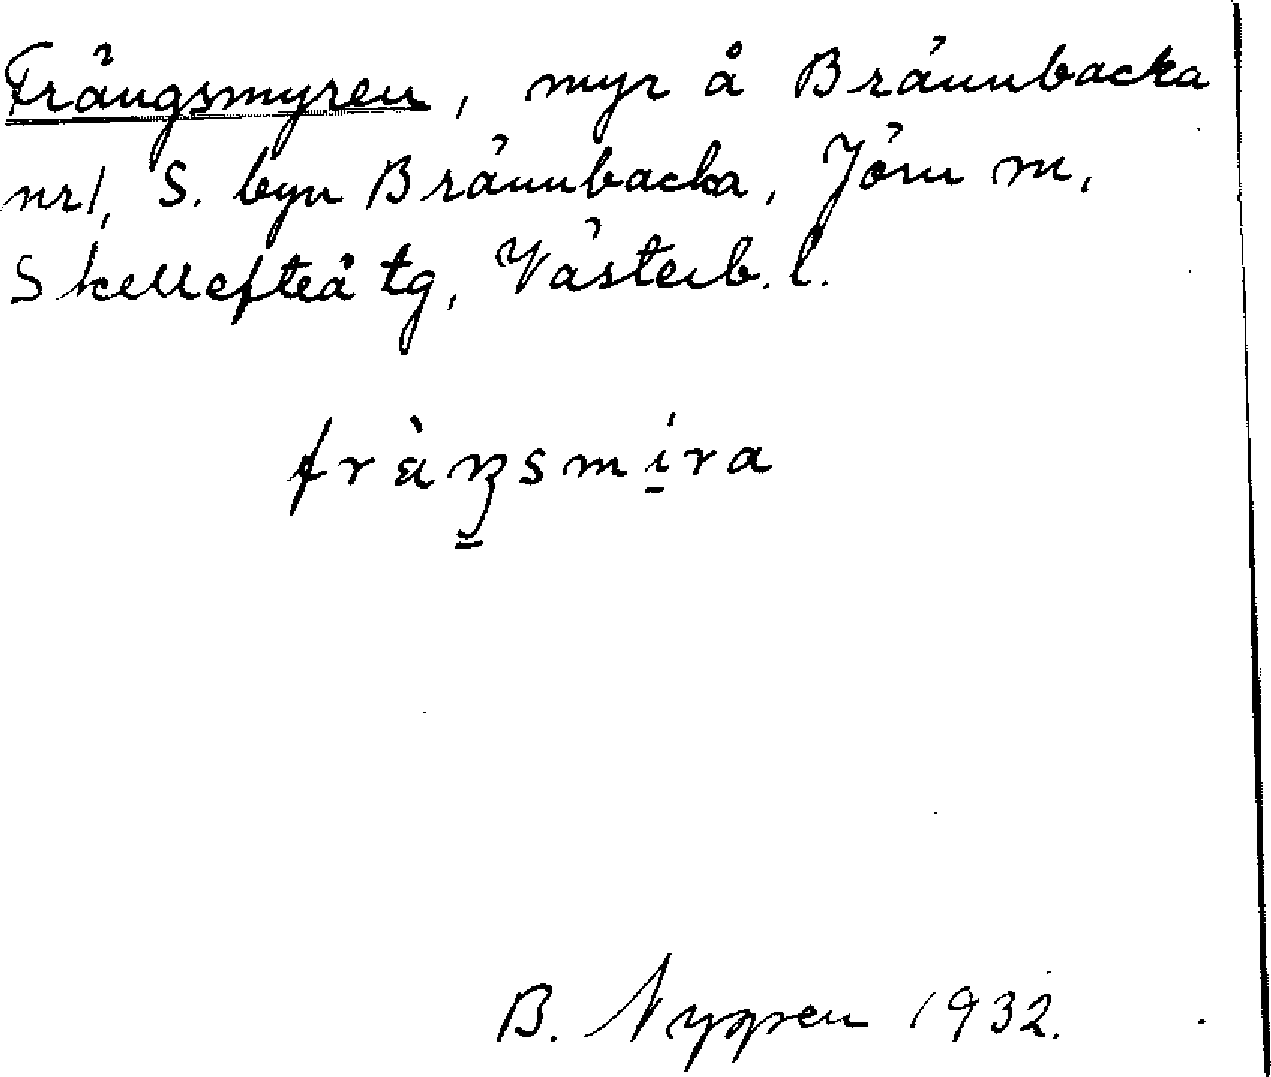 Frängsmyren, myr å Brännbacka
nr1, S. byn Brännbacka, Jörn m,
Skellefteå tg, Västerb. l.
B. Nygren 1932.